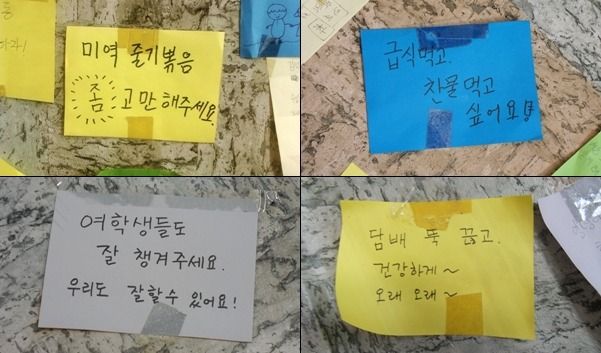 미역 줄기볶음
좀 고만해주세요.
급식먹고.
찬물먹고
싶어요
여학생들도
잘 챙겨주세요.
우리도 잘할수 있어요!
담배 뚝 끊고.
건강하게~
오래 오래~